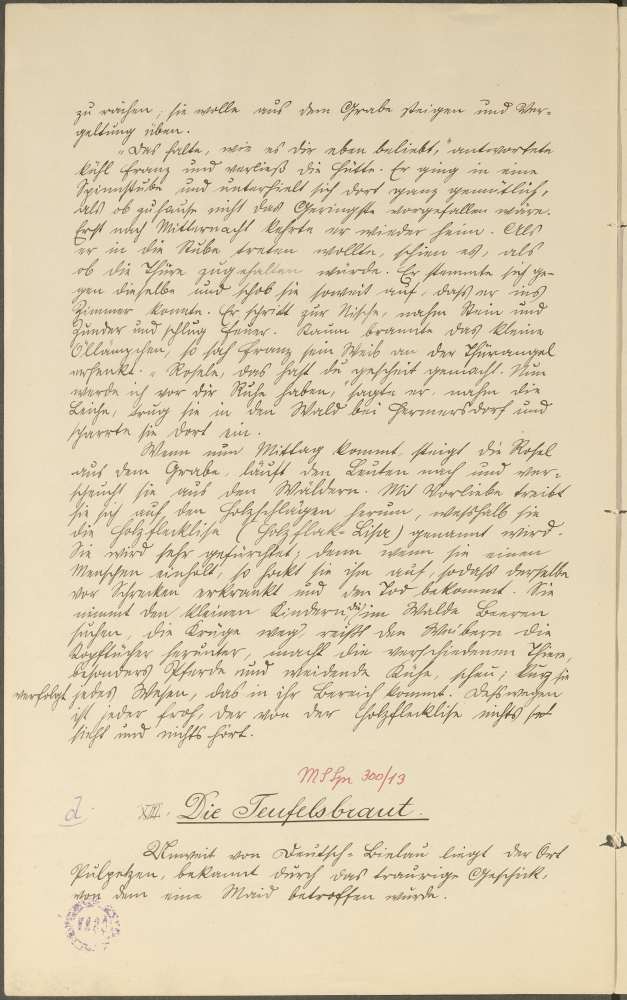 zu rächen; sie wolle aus dem Grabe steigen und Ver-
geltung üben.
„Das halte, wie es dir eben beliebt,“ antwortete
kühl Franz und verließ die Hütte. Er ging in eine
Spinnstube und unterhielt sich dort ganz gemütlich,
als ob zuhause nicht das Geringste vorgefallen wäre.
Erst nach Mitternacht kehrte er wieder heim. Als
er in die Stube treten wollte, schien es, als
ob die Thüre zugehalten würde. Er stemmte sich ge-
gen dieselbe und schob sie soweit auf, dass er ins
Zimmer konnte. Er schritt zur Nische, nahm Stein und
Zunder und schlug Feuer. Kaum brannte das kleine
Öllämpchen, so sah Franz sein Weib an der Thürangel
erhenkt. „Rosele, das hast du gescheit gemacht. Nun
werde ich vor dir Ruhe haben,“ sagte er, nahm die
Leiche, trug sie in den Wald bei Hermersdorf und
scharrte sie dort ein.
Wenn nun Mittag kommt, steigt die Rosel
aus dem Grabe, läuft den Leuten nach und ver-
scheucht sie aus den Wäldern. Mit Vorliebe treibt
sie sich auf den Holzschlägen herum, weshalb sie
die Holzflecklise (Holzflak-Lisa) genannt wird.
Sie wird sehr gefürchtet; denn wenn sie einen
Menschen einholt, so hockt sie ihm auf, sodass derselbe
vor Schrecken erkrankt und den Tod bekommt. Sie
nimmt den kleinen Kindern, die im Walde Beeren
suchen, die Krüge weg, reißt den Weibern die
Kopftücher herunter, macht die verschiedenen Thiere,
besonders Pferde und weidende Kühe, scheu; kurz sie
verfolgt jedes Wesen, das in ihr Bereich kommt. Desswegen
ist jeder froh, der von der Holzflecklise nichts
sieht und nichts hört.
MS Spn 300/13
d. XIII. Die Teufelsbraut.
Unweit von Deutsch-Bielau liegt der Ort
Pulpetzen, bekannt durch das traurige Geschick,
von dem eine Maid betroffen wurde.